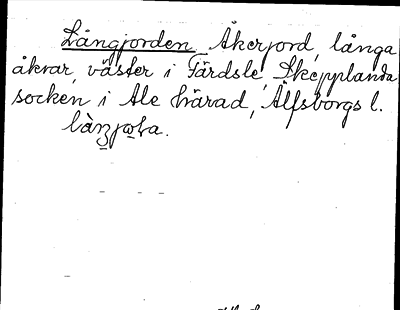 Långjorden Åkerjord, långa
åkrar, väster i Färdsle, Skepplanda
socken i Ale härad, Älfsborgs l.